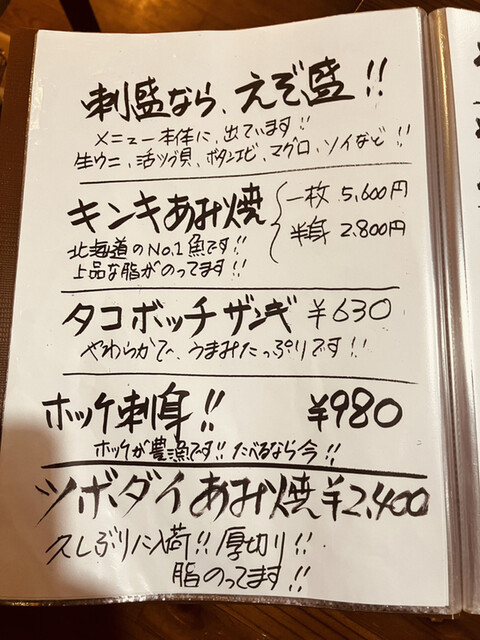 刺盛なら、えぞ盛!!
メニュー本体に、出ています!!
生ウニ、活ツブ貝、ボタンエビ、マグロ、ソイなど!!
キンキあみ焼
一枚 5,600円
半身 2,800円
北海道のNo.1魚です!!
上品な脂がのってます!!
タコボッチザンギ ¥630
やわらかで、うまみたっぷりです!!
ホッケ刺身!! ¥980
ホッケが豊漁です!! たべるなら今!!
ツボダイあみ焼¥2,400
久しぶりに入荷!! 厚切り!!
脂のってます!!